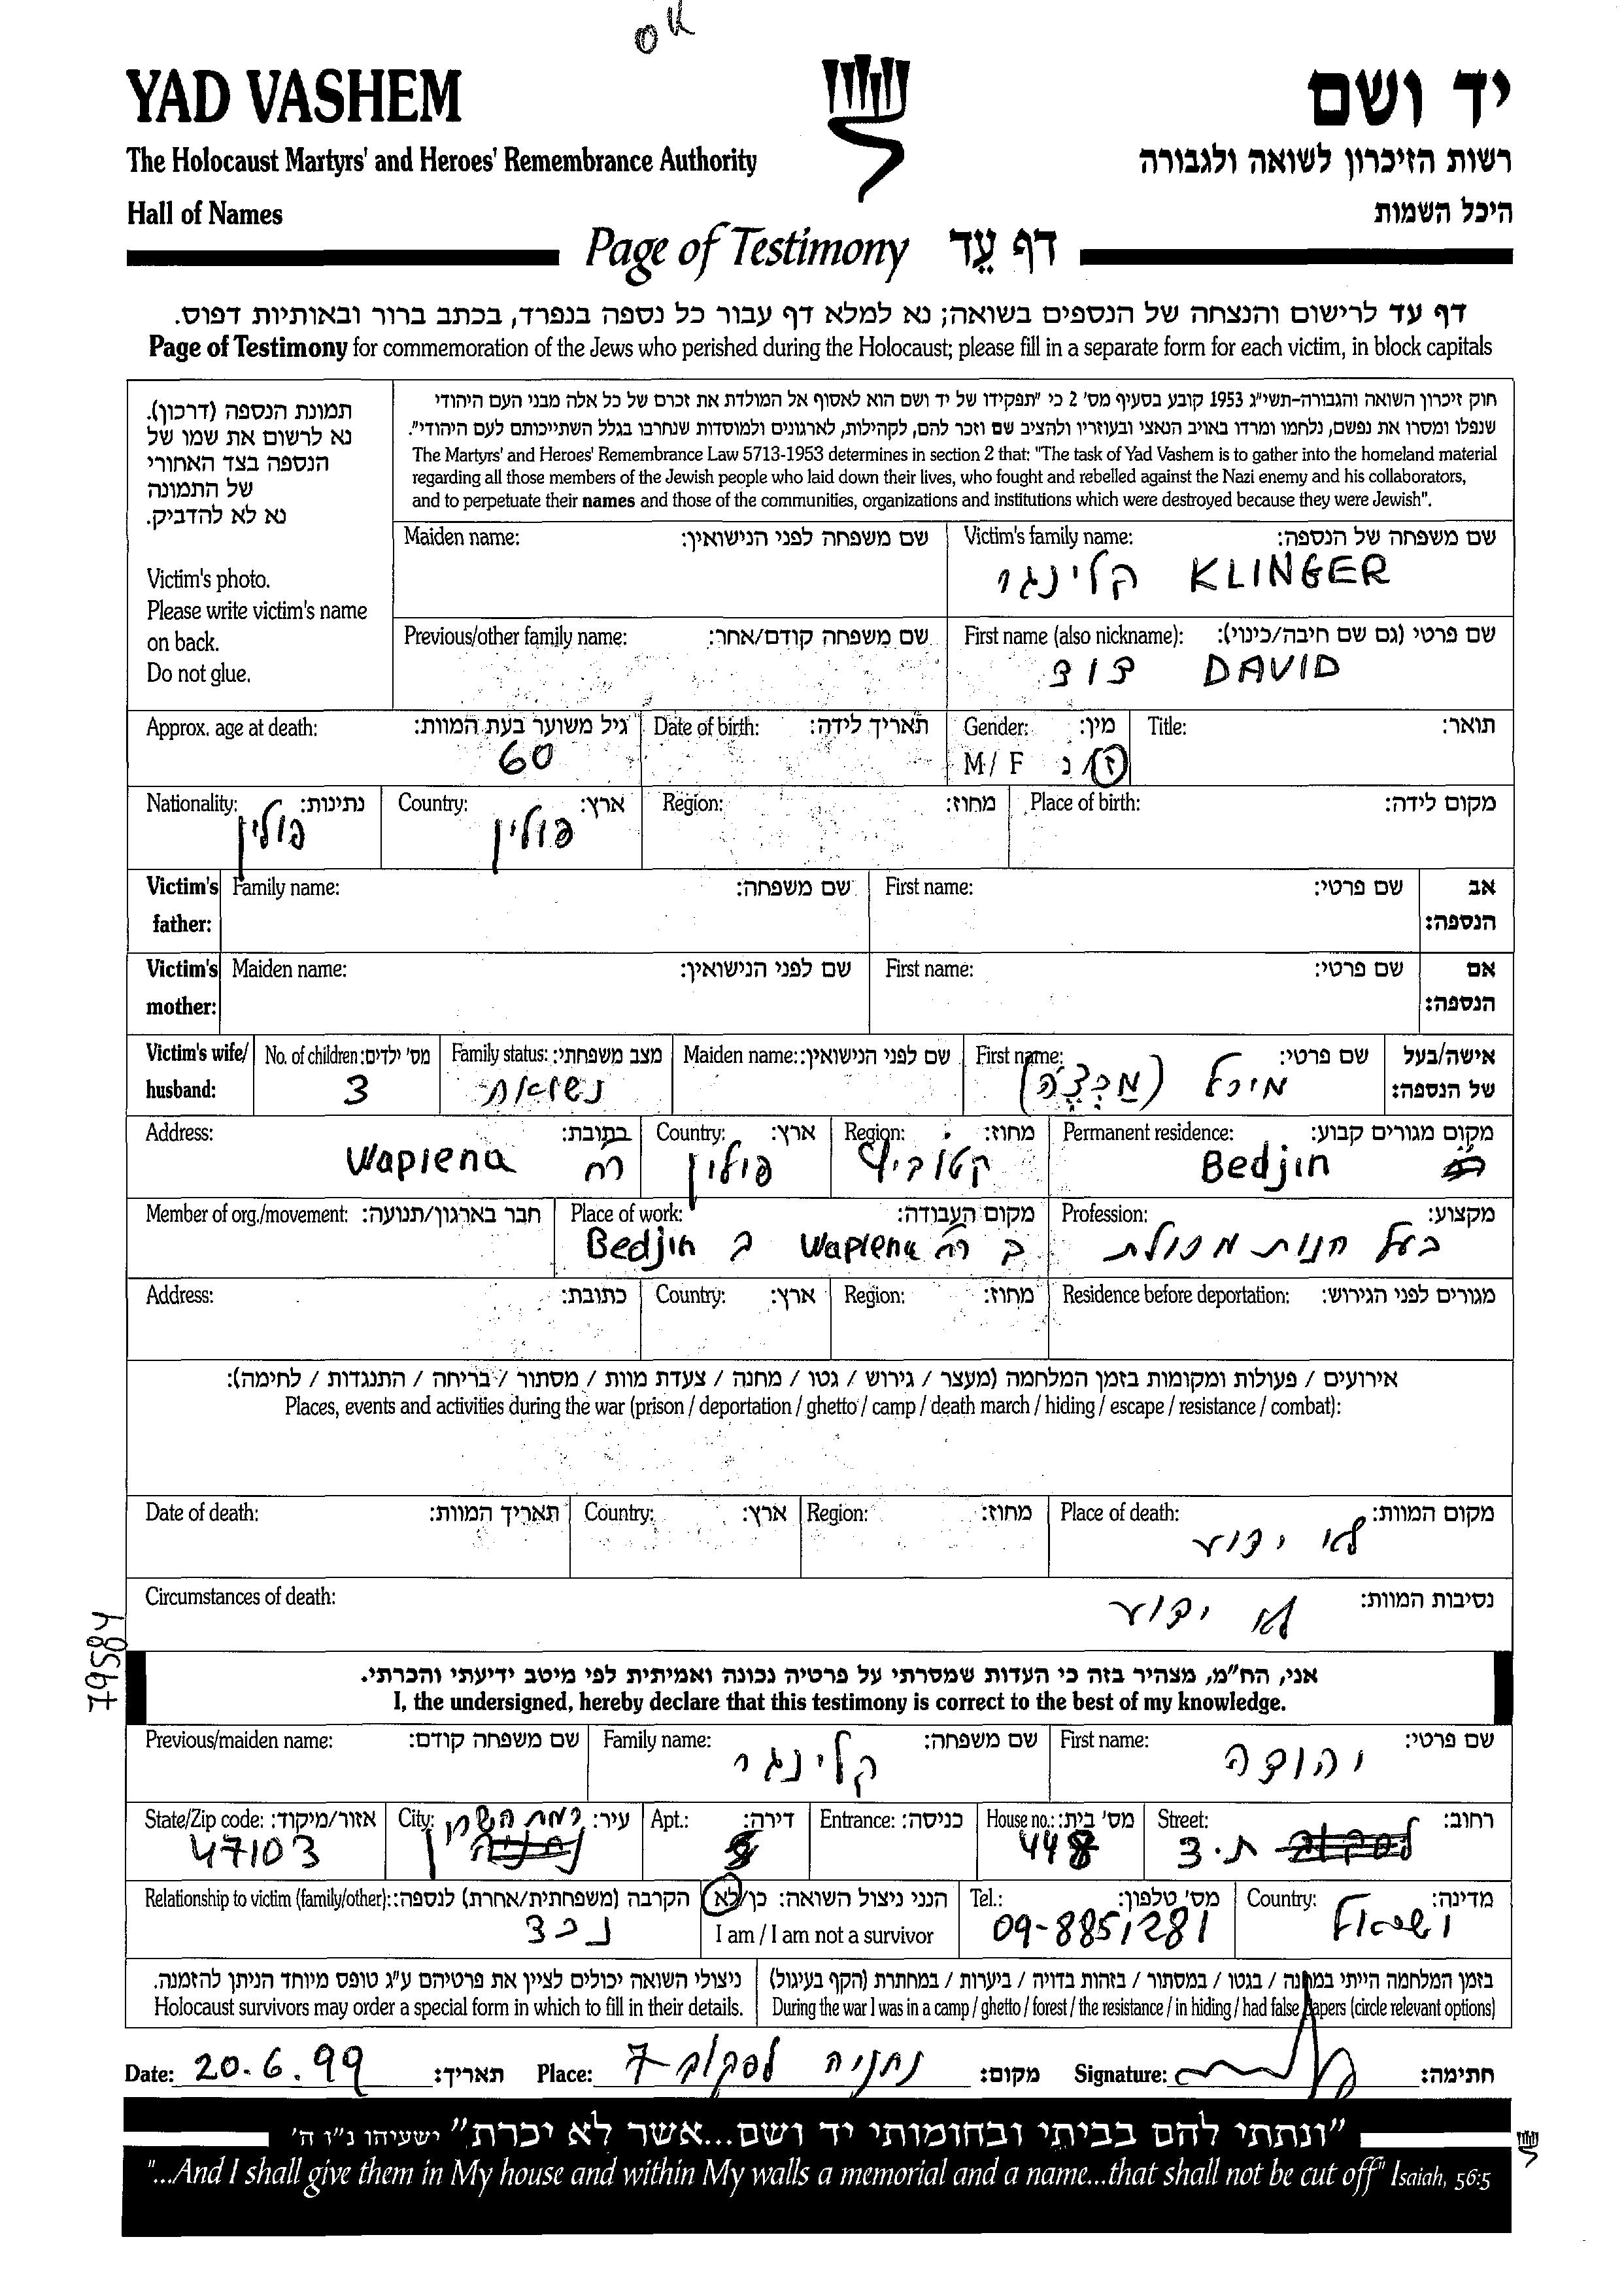 OK
YAD VASHEM
יד ושם
The Holocaust Martyrs' and Heroes' Remembrance Authority
רשות הזיכרון לשואה ולגבורה
Hall of Names
היכל השמות
Page of Testimony דף עֵד
דף עד לרישום והנצחה של הנספים בשואה; נא למלא דף עבור כל נספה בנפרד, בכתב ברור ובאותיות דפוס.
Page of Testimony for commemoration of the Jews who perished during the Holocaust; please fill in a separate form for each victim, in block capitals
תמונת הנספה (דרכון).
נא לרשום את שמו של
הנספה בצד האחורי
של התמונה
נא לא להדביק.
Victim's photo.
Please write victim's name
on back.
Do not glue.
חוק זיכרון השואה והגבורה-תשי"ג 1953 קובע בסעיף מס' 2 כי "תפקידו של יד ושם הוא לאסוף אל המולדת את זכרם של כל אלה מבני העם היהודי
שנפלו ומסרו את נפשם, נלחמו ומרדו באויב הנאצי ובעוזריו ולהציב שם וזכר להם, לקהילות, לארגונים ולמוסדות שנחרבו בגלל השתייכותם לעם היהודי".
The Martyrs' and Heroes' Remembrance Law 5713-1953 determines in section 2 that: "The task of Yad Vashem is to gather into the homeland material
regarding all those members of the Jewish people who laid down their lives, who fought and rebelled against the Nazi enemy and his collaborators,
and to perpetuate their names and those of the communities, organizations and institutions which were destroyed because they were Jewish".
Maiden name: שם משפחה לפני הנישואין: Victim's family name: שם משפחה של הנספה:
קלינגר KLINGER
Previous/other family name: שם משפחה קודם/אחר: First name (also nickname): שם פרטי (גם שם חיבה/כינוי):
דוד DAVID
Approx. age at death: גיל משוער בעת המוות: Date of birth: תאריך לידה: Gender: מין: Title: תואר:
60 M/ F ז/נ
Nationality: נתינות: Country: ארץ: Region: מחוז: Place of birth: מקום לידה:
פולין פולין
Victim's father: Family name: שם משפחה: First name: שם פרטי: אב הנספה:
Victim's mother: Maiden name: שם לפני הנישואין: First name: שם פרטי: אם הנספה:
Victim's wife/ husband: No. of children: מס' ילדים: Family status: מצב משפחתי: Maiden name: שם לפני הנישואין: First name: שם פרטי: אישה/בעל של הנספה:
3 נשואת מיכל
Address: כתובת: Country: ארץ: Region: מחוז: Permanent residence: מקום מגורים קבוע:
Wapiena רח פולין קטוביץ Bedjin
Member of org./movement: חבר בארגון/תנועה: Place of work: מקום העבודה: Profession: מקצוע:
ב רח Wapiena ב Bedjin בעל חנות מכולת
Address: כתובת: Country: ארץ: Region: מחוז: Residence before deportation: מגורים לפני הגירוש:
אירועים / פעולות ומקומות בזמן המלחמה (מעצר / גירוש / גטו / מחנה / צעדת מוות / מסתור / בריחה / התנגדות / לחימה):
Places, events and activities during the war (prison / deportation / ghetto / camp / death march / hiding / escape / resistance / combat):
Date of death: תאריך המוות: Country: ארץ: Region: מחוז: Place of death: מקום המוות:
לא ידוע
Circumstances of death: נסיבות המוות:
לא ידוע
79584
אני, הח"מ, מצהיר בזה כי העדות שמסרתי על פרטיה נכונה ואמיתית לפי מיטב ידיעתי והכרתי.
I, the undersigned, hereby declare that this testimony is correct to the best of my knowledge.
Previous/maiden name: שם משפחה קודם: Family name: שם משפחה: First name: שם פרטי:
קלינגר יהודה
State/Zip code: אזור/מיקוד: City: עיר: Apt.: דירה: Entrance: כניסה: House no.: מס' בית: Street: רחוב:
47103 רמת השרון 448 ת.ד
Relationship to victim (family/other): הקרבה (משפחתית/אחרת) לנספה: הנני ניצול השואה: כן/לא Tel.: מס' טלפון: Country: מדינה:
נכד I am / I am not a survivor 09-8851281 ישראל
ניצולי השואה יכולים לציין את פרטיהם ע"ג טופס מיוחד הניתן להזמנה. בזמן המלחמה הייתי במחנה / בגטו / במסתור / בזהות בדויה / ביערות / במחתרת (הקף בעיגול)
Holocaust survivors may order a special form in which to fill in their details. During the war I was in a camp / ghetto / forest / the resistance / in hiding / had false papers (circle relevant options)
Date: 20.6.99 תאריך: Place: נתניה 7 מקום: Signature: חתימה:
"ונתתי להם בביתי ובחומותי יד ושם...אשר לא יכרת" ישעיהו נ"ו ה'
"...And I shall give them in My house and within My walls a memorial and a name...that shall not be cut off" Isaiah, 56:5